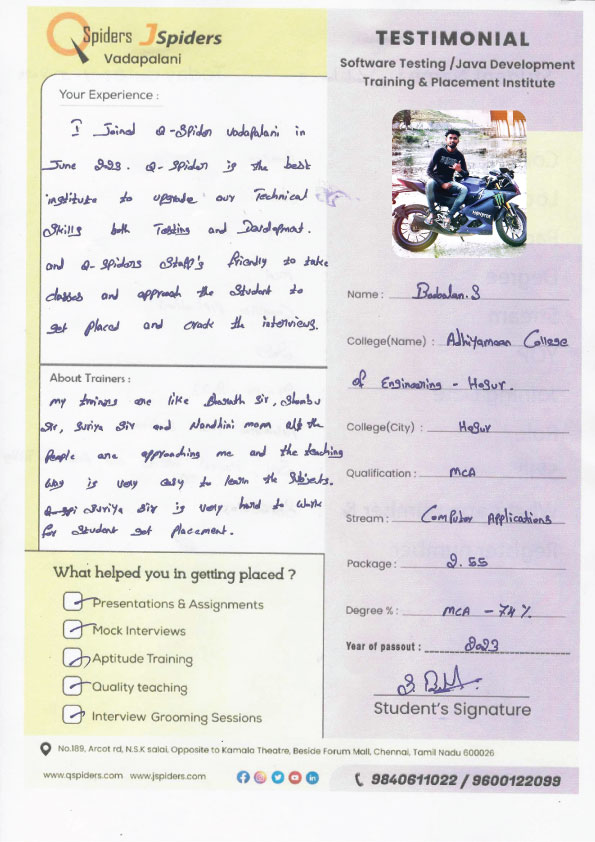 QSpiders JSpiders
Vadapalani
Your Experience :
I Joined Q-Spider Vadapalani in
June 223. Q-Spiders is the best
institute to upgrade our Technical
Skills both Testing and Development.
and Q-Spiders Staff's friendly to take
classes and approach the Student to
get placed and crack the interviews.
About Trainers :
my trainers are like Bharath Sir, Shambu
Sir, Suriya Sir and Nandhini mam all the
People are approaching me and the teaching
way is very easy to learn the Subjects.
Q-Spi Suriya Sir is very hard to work
for Student get Placement.
What helped you in getting placed ?
Presentations & Assignments
Mock Interviews
Aptitude Training
Quality teaching
Interview Grooming Sessions
TESTIMONIAL
Software Testing /Java Development
Training & Placement Institute
Name : S
College(Name) : Adhiyamaan College
of Engineering - Hosur.
College(City) : Hosur
Qualification : MCA
Stream : Computer Applications
Package : 2.55
Degree % : MCA - 74%
Year of passout : 2023
Student's Signature
No.189, Arcot rd, N.S.K salai, Opposite to Kamala Theatre, Beside Forum Mall, Chennai, Tamil Nadu 600026
www.qspiders.com www.jspiders.com
9840611022 / 9600122099